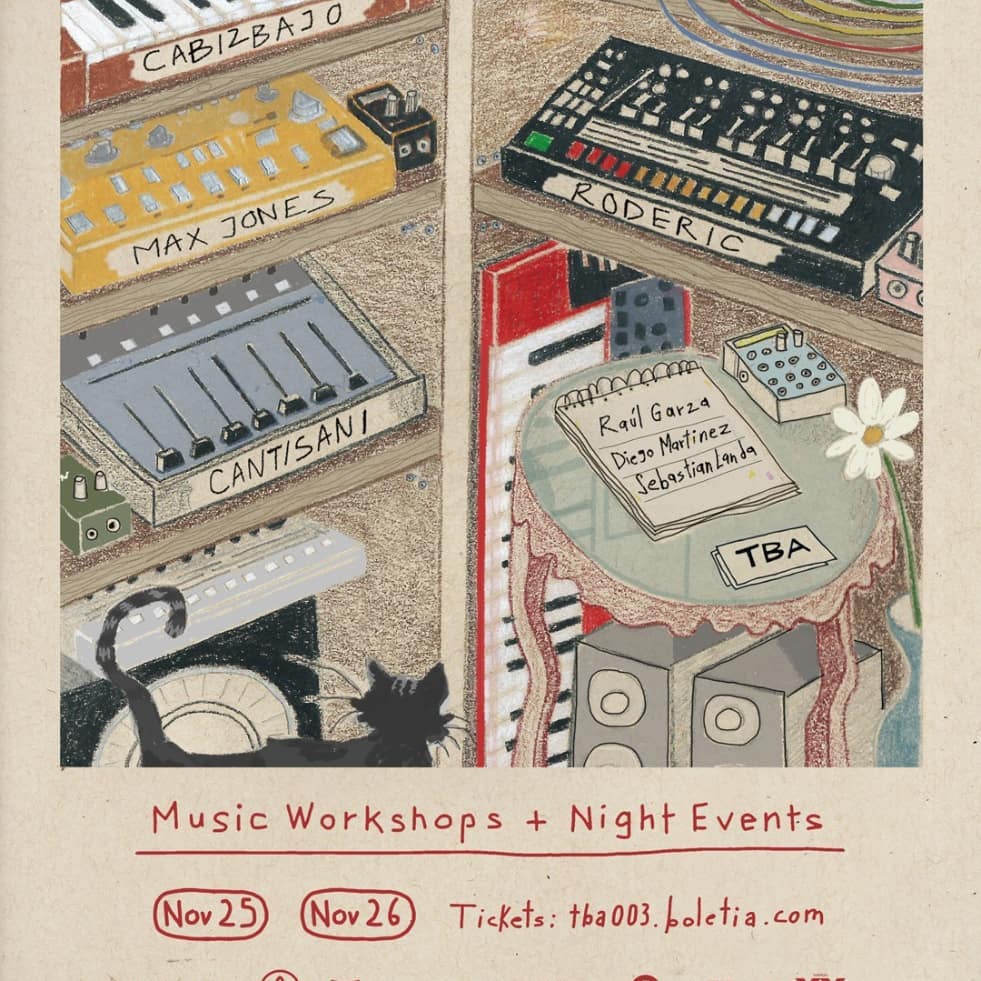 CABIZBAJO
MAX JONES
RODERIC
CANTISANI
Raúl Garza
Diego Martinez
Sebastian Landa
TBA
Music Workshops + Night Events
Nov 25
Nov 26
Tickets: tba003.boletia.com